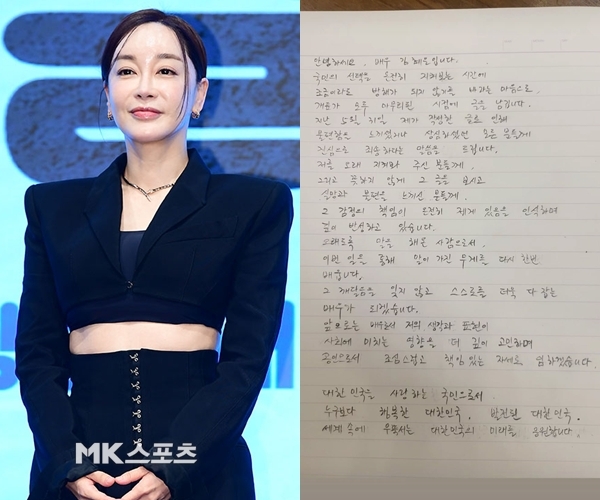 MK스포츠
안녕하세요, 배우 김혜은입니다.
국민의 선택을 온전히 지켜보는 시간에
조금이라도 방해가 되지 않기를 바라는 마음으로,
개표가 모두 마무리된 시점에 글을 남깁니다.
지난 5월 31일, 제가 작성한 글로 인해
불편함을 느끼셨거나 상심하셨던 모든 분들께
진심으로 죄송하다는 말씀을 드립니다.
저를 오래 지켜봐 주신 분들께,
그리고 뜻하지 않게 그 글을 읽고
실망과 불편을 느끼신 분들께,
그 감정의 책임이 온전히 제게 있음을 인식하며
깊이 반성하고 있습니다.
오래도록 말을 해온 사람으로서,
이번 일을 통해 말이 가진 무게를 다시 한번
배웁니다.
그 깨달음을 잊지 않고 스스로를 더욱 다잡는
배우가 되겠습니다.
앞으로는 배우로서 저의 생각과 표현이
사회에 미치는 영향을 더 깊이 고민하며
공인으로서 조심스럽고 책임 있는 자세로 임하겠습니다.
대한민국을 사랑하는 국민으로서
누구보다 행복한 대한민국, 발전된 대한민국,
세계 속에 우뚝서는 대한민국의 미래를 응원합니다.